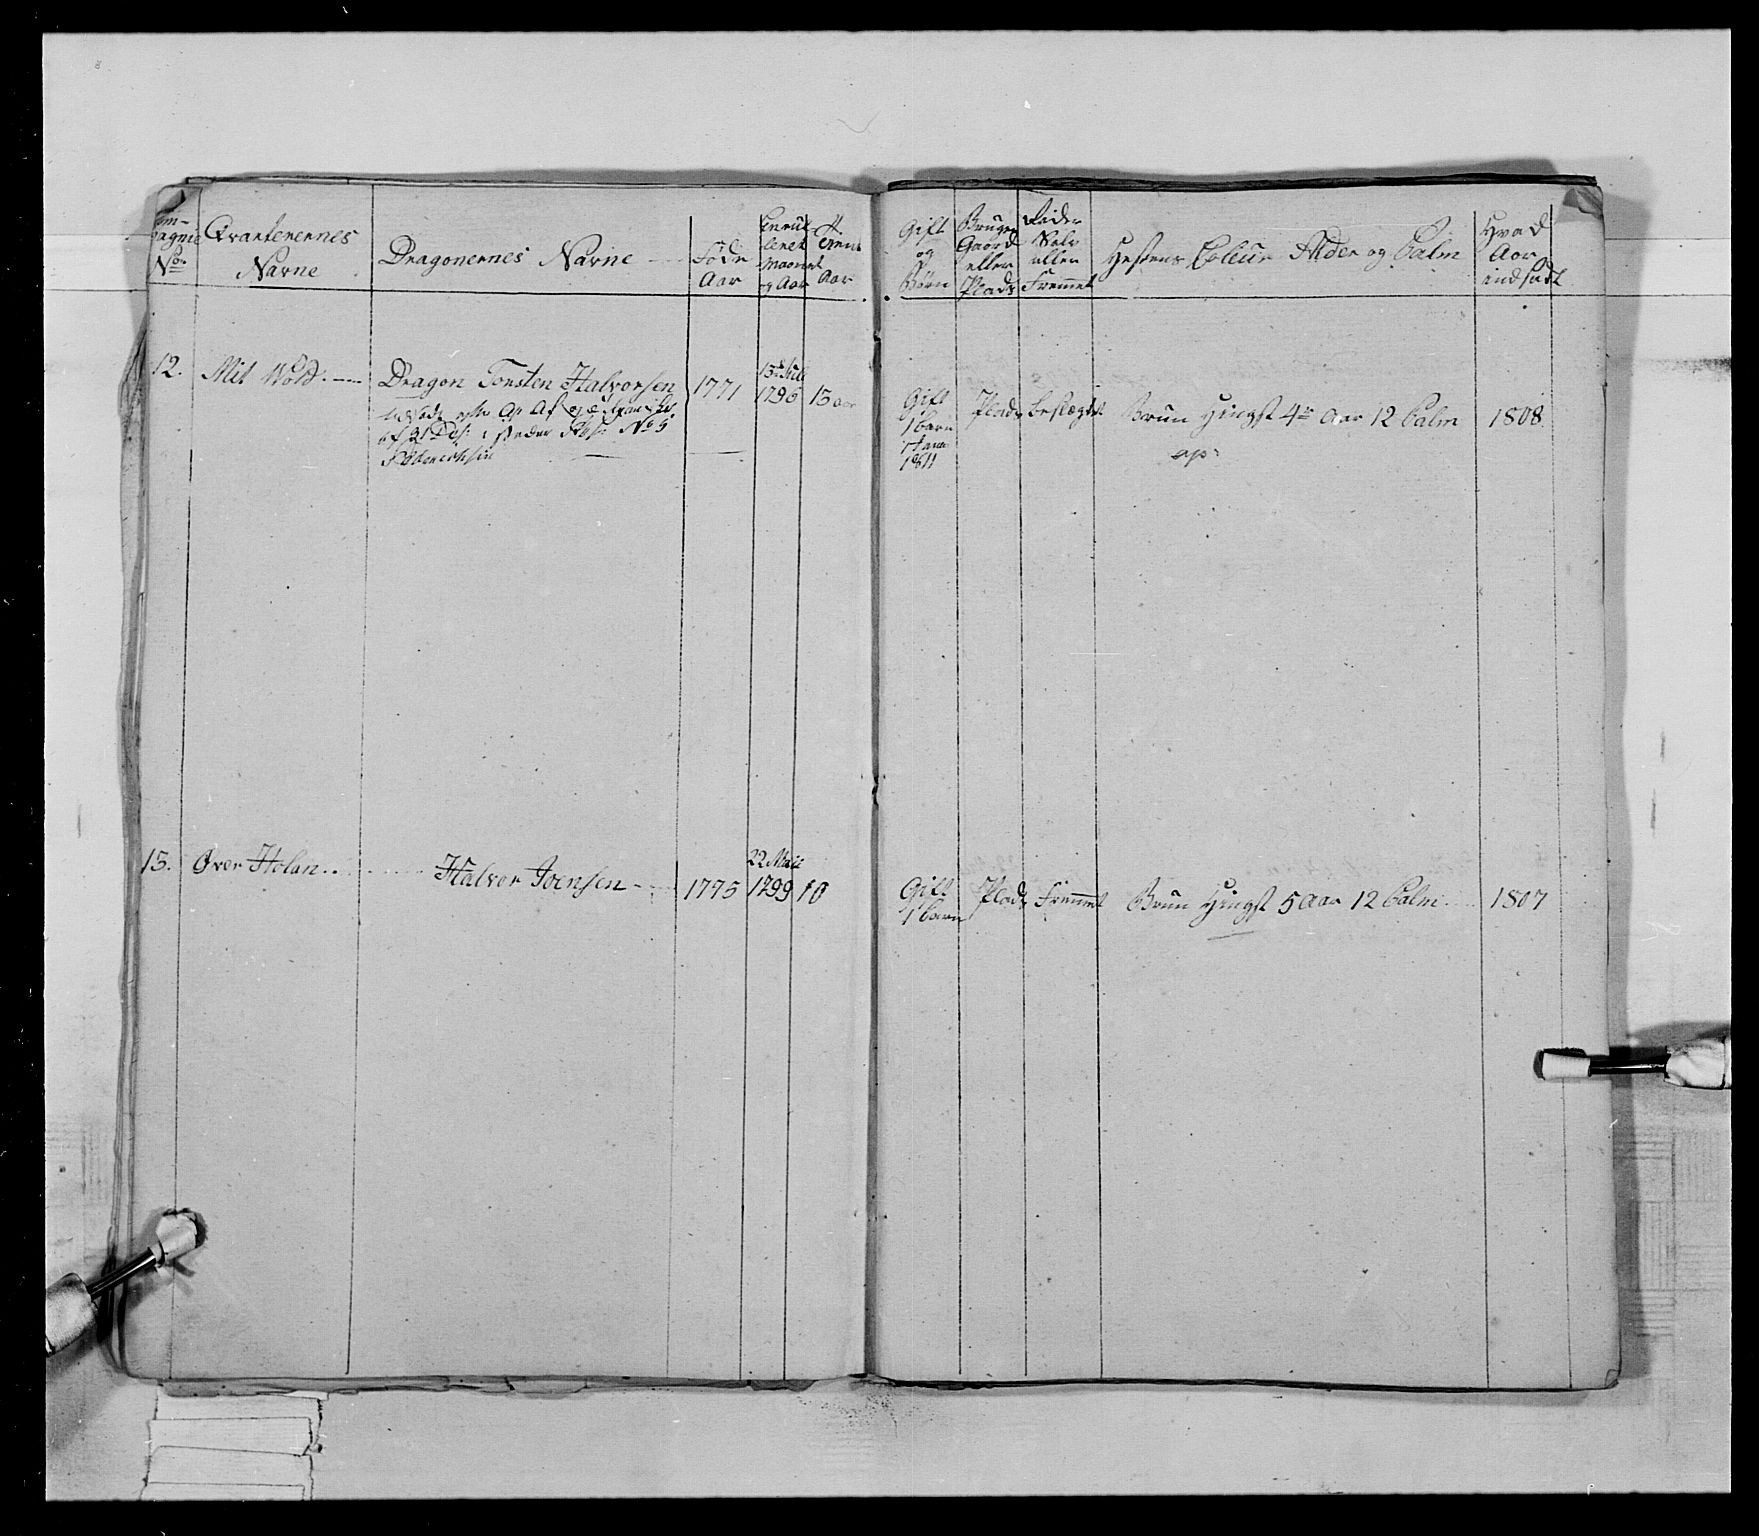 Com-
pagnie
No
Qvarterernes
Navne
Dragonernes Navne
Føde
Aar
Enrul
leret
Maaned
og Aar
Tient
Aar
Gift
og
Børn
Bruger
Gaard
eller
Plads
Rider
Selv
eller
Fremmet
Hestens Coleur Alder og Palm
Hvad
Aar
indsadt
12. Mit Wold. Dragon Torsten Halvorsen 1771
13 Juli
1796 13 aar
No 5
Gift
1 barn
1811
Plads beslægtet Brun Hingst 4re Aar 12 Palm 1808.
13. Over Holan .. Halvor Joensen 1775
22 Maii
1799 10
Gift
1 barn
Plads Fremmet Brun Hingst 5 Aar 12 Palm 1807